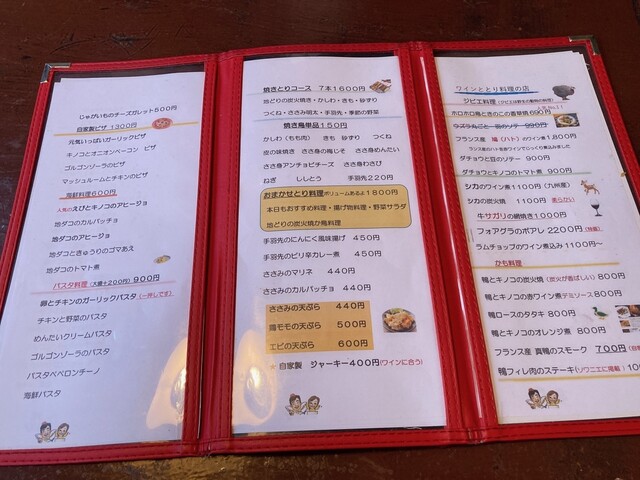 じゃがいものチーズガレット500円
自家製ピザ 1300円
元気いっぱいガーリックピザ
キノコとオニオンベーコン ピザ
ゴルゴンゾーラのピザ
マッシュルームとチキンのピザ
海鮮料理600円
人気のえびとキノコのアヒージョ
地ダコのカルパッチョ
地ダコのアヒージョ
地ダコときゅうりのゴマあえ
地ダコのトマト煮
パスタ料理(大盛+200円) 900円
豚とチキンのガーリックパスタ(一押しです)
チキンと野菜のパスタ
めんたいクリームパスタ
ゴルゴンゾーラのパスタ
パスタペペロンチーノ
海鮮パスタ
焼きとりコース 7本1600円
地どりの炭火焼き・かしわ・きも・砂ずり
つくね・ささみ明太・手羽先・季節の野菜
焼き鳥単品150円
かしわ(もも肉) きも 砂ずり つくね
皮の味噌焼き ささみ梅じそ ささみ明太
ささみアンチョビチーズ ささみわさび
ねぎ ししとう 手羽先220円
おまかせとり料理ボリュームあるよ1800円
本日もおすすめ料理・揚げ物料理・野菜サラダ
地どりの炭火焼か鴨料理
手羽先のにんにく風味揚げ 450円
手羽先のピリ辛カレー煮 450円
ささみのマリネ 440円
ささみのカルパッチョ 440円
ささみの天ぷら 440円
鶏モモの天ぷら 500円
エビの天ぷら 600円
★ 自家製 ジャーキー400円(ワインに合う)
ワインととり料理の店
ジビエ料理 (ジビエは野生の動物の料理)
人気No.1!
ホロホロ鳥ときのこの香草焼690円
ウズラ丸ごと 豆のソテー 990円
フランス産 鳩(ハト)のワイン煮1,800円
フランス産のハトを赤ワインでじっくり煮込みました
ダチョウと豆のソテー 900円
ダチョウとキノコのトマト煮 900円
シカのワイン煮1100円(九州産)
シカの炭焼 1100円 柔らかい
牛サガリの網焼き1000円
フォアグラのポアレ 2200円(特選)
ラムチョップのワイン煮込み1100円~
かも料理
鴨とキノコの炭火焼 (炭火が香ばしい)800円
鴨とキノコの赤ワイン煮デミソース800円
鴨ロースのタタキ 800円
鴨とキノコのオレンジ煮 800円
フランス産 真鴨のスモーク 700円
鴨フィレ肉のステーキ(ソワニエに掲載!)